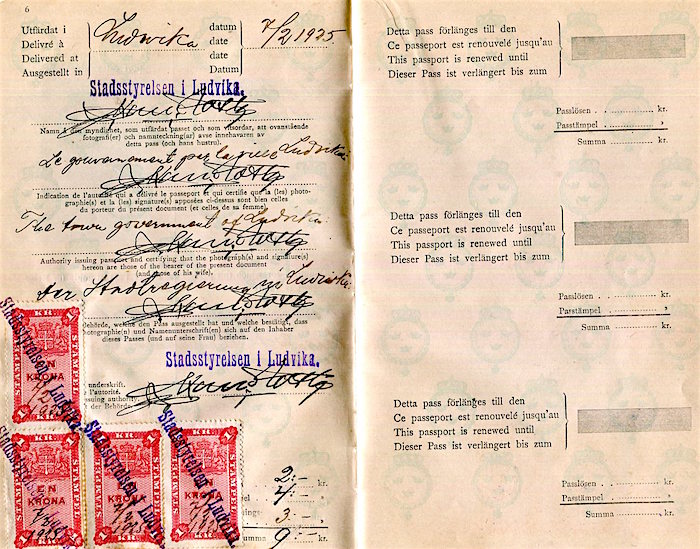 6
Utfärdat i datum
Delivré à Ludwika date 7/2 1925.
Delivered at date
Ausgestellt in Datum
Stadsstyrelsen i Ludvika.
Namn å den myndighet, som utfärdat passet och som vitsordar, att ovanstående
fotografi(er) och namnteckning(ar) avse innehavaren av
detta pass (och hans hustru).
Le gouvernement de la ville Ludvika
Indication de l'autorité qui a délivré le passeport et qui certifie que la (les) photo-
graphie(s) et la (les) signature(s) apposées ci-dessus sont bien celles
du porteur du présent document (et celles de sa femme).
The town government of Ludvika
Authority issuing passport and certifying that the photograph(s) and signature(s)
hereon are those of the bearer of the present document
(and those of his wife).
der Stadtregierung Ludvika
Behörde, welche den Pass ausgestellt hat und welche bestätigt, dass
Photographie(n) und Namenunterschrift(en) sich auf den Inhaber
dieses Passes (und auf seine Frau) beziehen.
Stadsstyrelsen i Ludvika.
underskrift.
l'autorité.
issuing authority.
der Behörde.
KR 1 STÄMPEL
EN
KRONA
Stadsstyrelsen i Ludvika.
KR 1 STÄMPEL
EN
KRONA
KR 1 STÄMPEL
EN
KRONA
Stadsstyrelsen i Ludvika.
KR 1 STÄMPEL
EN
KRONA
Stadsstyrelsen i Ludvika.
2:- kr.
4:-
3:-
9:- kr.
Detta pass förlänges till den
Ce passeport est renouvelé jusqu'au
This passport is renewed until
Dieser Pass ist verlängert bis zum
Passlösen kr.
Passtämpel »
Summa kr.
Detta pass förlänges till den
Ce passeport est renouvelé jusqu'au
This passport is renewed until
Dieser Pass ist verlängert bis zum
Passlösen kr.
Passtämpel »
Summa kr.
Detta pass förlänges till den
Ce passeport est renouvelé jusqu'au
This passport is renewed until
Dieser Pass ist verlängert bis zum
Passlösen kr.
Passtämpel »
Summa kr.